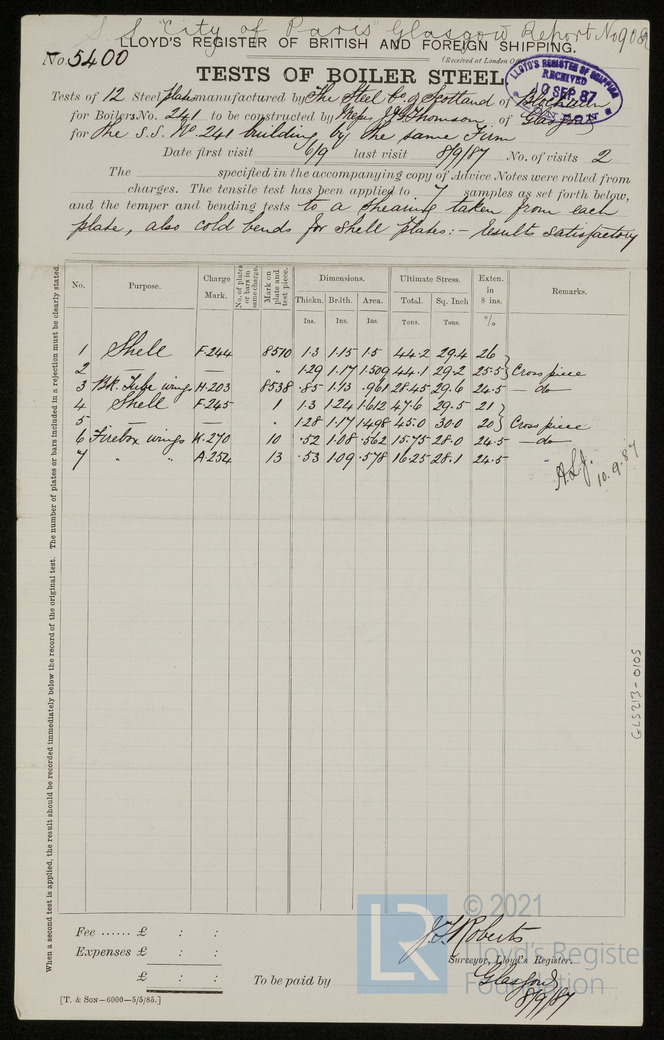 S.S. "City of Paris" Glasgow Report No 9082
LLOYD'S REGISTER OF BRITISH AND FOREIGN SHIPPING.
No. 5400
(Received at London
LLOYD'S REGISTER OF SHIPPING
RECEIVED
SEP. 87
LONDON
TESTS OF BOILER STEEL
Tests of 12 Steel plates manufactured by The Steel Co. of Scotland of Blochairn
for Boilers No. 241 to be constructed by Messrs J & G Thomson of Glasgow
for the S.S. No. 241 building by the same Firm
Date first visit 6/9 last visit 8/9/87 No. of visits 2
The specified in the accompanying copy of Advice Notes were rolled from
charges. The tensile test has been applied to 7 samples as set forth below,
and the temper and bending tests to a shearing taken from each
plate, also cold bends for shell plates:- Results satisfactory
No. Purpose. Charge Mark. No. of plates or bars in same charge. Mark on plate and test piece. Dimensions. Ultimate Stress. Exten. in 8 ins. Remarks.
Thickn. Brdth. Area. Total. Sq. Inch
Ins. Ins. Ins. Tons. Tons. %
1 Shell F.244 8510 1.3 1.15 1.5 44.2 29.4 26
2 — — " 1.29 1.17 1.509 44.1 29.2 25.5 } Cross piece
3 Bk. Tube wings H.203 8538 .85 1.13 .961 28.45 29.6 24.5 — do —
4 Shell F.245 1 1.3 1.24 1.612 47.6 29.5 21
5 — — " 1.28 1.17 1.498 45.0 30.0 20 } Cross piece
6 Firebox wings K.270 10 .52 1.08 .562 15.75 28.0 24.5 — do —
7 " " A.254 13 .53 1.09 .578 16.25 28.1 24.5
10.9.87
When a second test is applied, the result should be recorded immediately below the record of the original test. The number of plates or bars included in a rejection must be clearly stated.
GLS213-0105
Fee ...... £ : :
Expenses £ : :
£ : :
To be paid by
J.S. Roberts
Surveyor, Lloyd's Register.
Glasgow
8/9/87
[T. & SON—6000—5/5/85.]
© 2021
LR
Lloyd's Register
Foundation